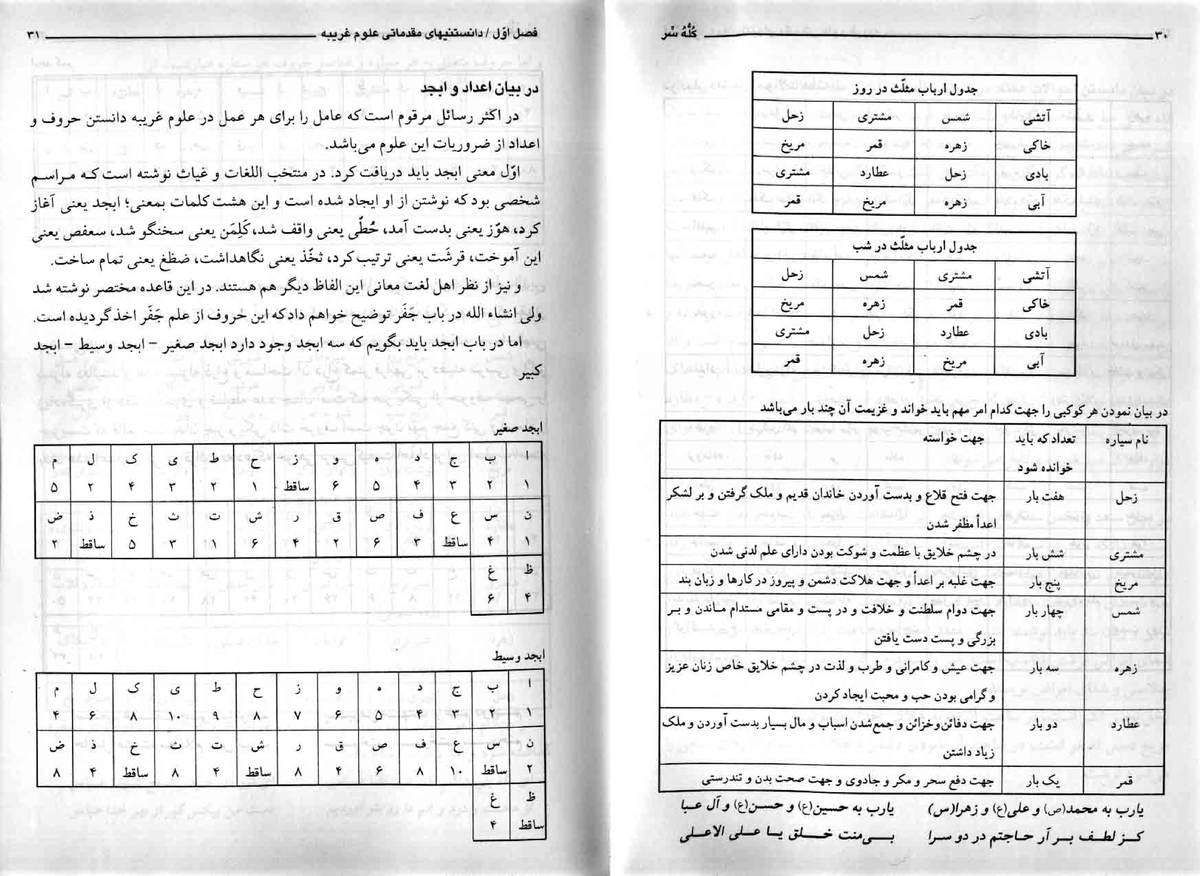 ۳۰ كُلُّهُ سَّر
جدول ارباب مثلّث در روز
آتشی شمس مشتری زحل
خاکی زهره قمر مریخ
بادی زحل عطارد مشتری
آبی زهره مریخ قمر
جدول ارباب مثلّث در شب
آتشی مشتری شمس زحل
خاکی قمر زهره مریخ
بادی عطارد زحل مشتری
آبی مریخ زهره قمر
در بیان نمودن هر کوکبی را جهت کدام امر مهم باید خواند و غزیمت آن چند بار می‌باشد
نام سیاره تعداد که باید جهت خواسته
خوانده شود
زحل هفت بار جهت فتح قلاع و بدست آوردن خاندان قدیم و ملک گرفتن و بر لشکر
اعدأ مظفر شدن
مشتری شش بار در چشم خلایق با عظمت و شوکت بودن دارای علم لدنی شدن
مریخ پنج بار جهت غلبه بر اعدأ و جهت هلاکت دشمن و پیروز در کارها و زبان بند
شمس چهار بار جهت دوام سلطنت و خلافت و در پست و مقامی مستدام ماندن و بر
بزرگی و پست دست یافتن
زهره سه بار جهت عیش و کامرانی و طرب و لذت در چشم خلایق خاص زنان عزیز
و گرامی بودن حب و محبت ایجاد کردن
عطارد دو بار جهت دفائن و خزائن و جمع شدن اسباب و مال بسیار بدست آوردن و ملک
زیاد داشتن
قمر یک بار جهت دفع سحر و مکر و جادوی و جهت صحت بدن و تندرستی
یارب به محمد(ص) و علی(ع) و زهرا(س) یارب به حسین(ع) و حسن(ع) و آل عبا
کز لطف بر آر حاجتم در دو سرا بی‌منت خلق یا علی الاعلی
فصل اوّل / دانستنیهای مقدماتی علوم غریبه ۳۱
در بیان اعداد و ابجد
در اکثر رسائل مرقوم است که عامل را برای هر عمل در علوم غریبه دانستن حروف و
اعداد از ضروریات این علوم می‌باشد.
اوّل معنی ابجد باید دریافت کرد. در منتخب اللغات و غیاث نوشته است که مراسم
شخصی بود که نوشتن از او ایجاد شده است و این هشت کلمات بمعنی؛ ابجد یعنی آغاز
کرد، هوّز یعنی بدست آمد، حُطّی یعنی واقف شد، کَلِمَن یعنی سخنگو شد، سعفص یعنی
این آموخت، قرشَت یعنی ترتیب کرد، ثخّذ یعنی نگاهداشت، ضظّغ یعنی تمام ساخت.
و نیز از نظر اهل لغت معانی این الفاظ دیگر هم هستند. در این قاعده مختصر نوشته شد
ولی انشاء الله در باب جَفَر توضیح خواهم داد که این حروف از علم جَفَر اخذ گردیده است.
اما در باب ابجد باید بگویم که سه ابجد وجود دارد ابجد صغیر – ابجد وسیط – ابجد
کبیر
ابجد صغیر
ا ب ج د ه و ز ح ط ی ک ل م
۱ ۲ ۳ ۴ ۵ ۶ ساقط ۱ ۲ ۳ ۴ ۲ ۵
ن س ع ف ص ق ر ش ت ث خ ذ ض
۱ ۴ ساقط ۳ ۶ ۲ ۴ ۶ ۱ ۳ ۵ ساقط ۲
ظ غ
۴ ۶
ابجد وسیط
ا ب ج د ه و ز ح ط ی ک ل م
۱ ۲ ۳ ۴ ۵ ۶ ۷ ۸ ۹ ۱۰ ۸ ۶ ۴
ن س ع ف ص ق ر ش ت ث خ ذ ض
۲ ساقط ۱۰ ۸ ۶ ۴ ۸ ساقط ۴ ۸ ساقط ۴ ۸
ظ غ
ساقط ۴